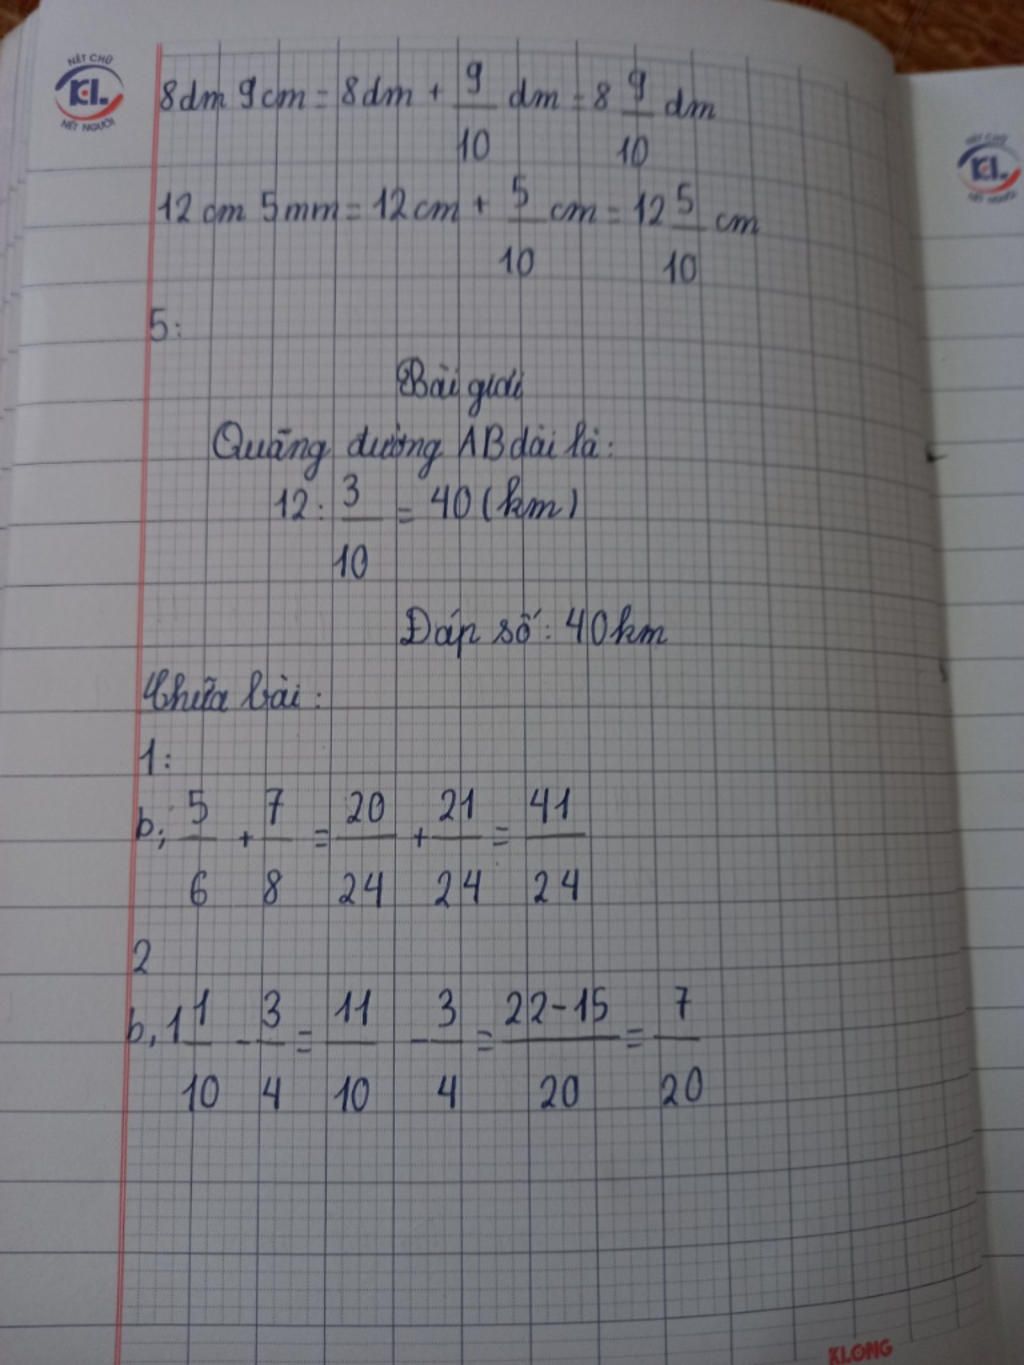 NÉT CHỮ
KL.
NẾT NGƯỜI
8dm 9cm = 8dm + 9/10 dm = 8 9/10 dm
12cm 5mm = 12cm + 5/10 cm = 12 5/10 cm
5:
Bài giải
Quãng đường AB dài là:
12 : 3/10 = 40 (km)
Đáp số: 40km
Chữa bài:
1:
b, 5/6 + 7/8 = 20/24 + 21/24 = 41/24
2
b, 1 1/10 - 3/4 = 11/10 - 3/4 = 22-15/20 = 7/20
KLONG
NÉT CHỮ
KL.
NẾT NGƯỜI